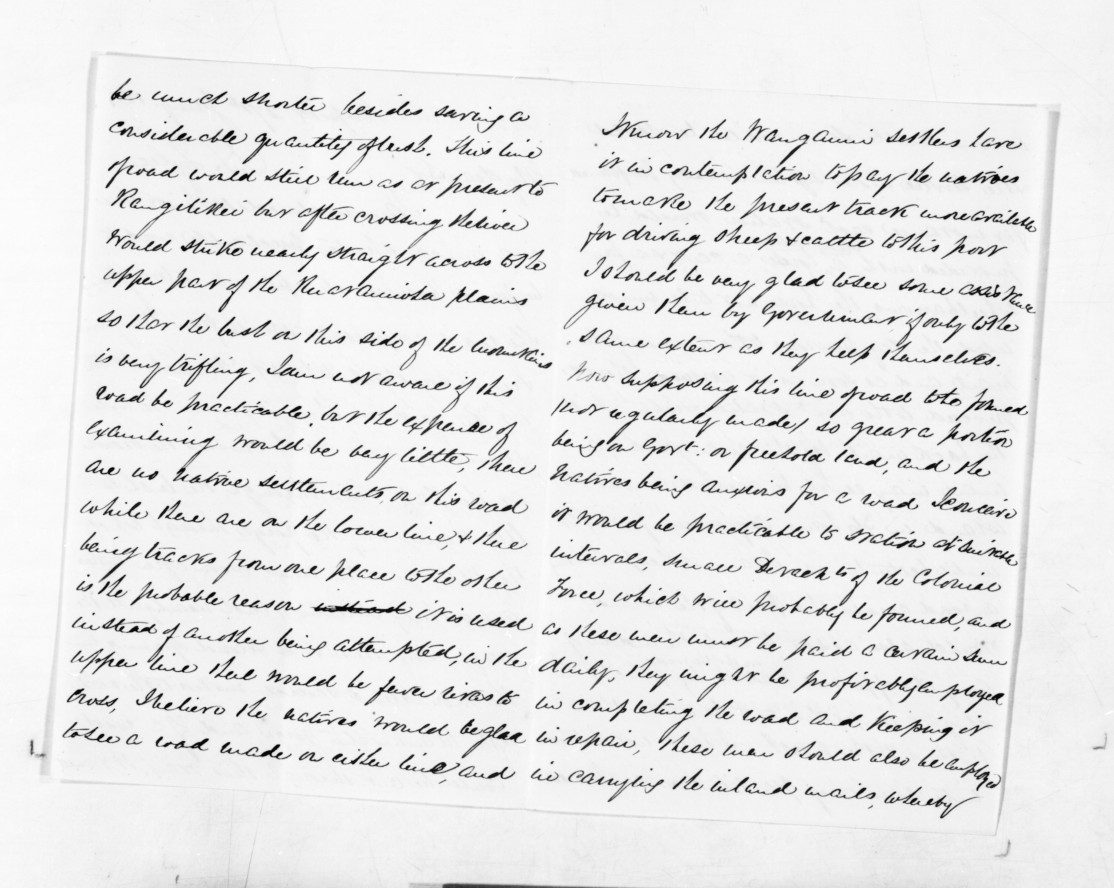 be much shorter besides saving a
considerable quantity of bush. This line
of road would still run as at present to
Rangitikei but after crossing the river
would strike nearly straight across to the
upper part of the Ruataniwha plains
so that the bush on this side of the mountains
is very trifling, I am not aware if this
road be practicable, but the expence of
examining would be very little, there
are no native settlements on this road
while there are on the lower line, & there
being tracks from one place to the other
is the probable reason instead it is used
instead of another being attempted, in the
upper line there would be fewer rivers to
cross, I believe the natives would be glad
to see a road made on either line, and
I know the Wanganui settlers have
it in contemplation to pay the natives
to make the present track more available
for driving sheep & cattle to this port
I should be very glad to see some assistance
given them by Government, if only to the
same extent as they help themselves.
Now supposing this line of road to be formed
(not regularly made) so great a portion
being on Govt. or freehold land, and the
Natives being anxious for a road I conceive
it would be practicable to station at suitable
intervals, small Detachts. of the Colonial
Force, which will probably be formed, and
as these men must be paid a certain sum
daily, they might be profitably employed
in completing the road and keeping it
in repair, these men should also be employed
in carrying the inland mails, whereby